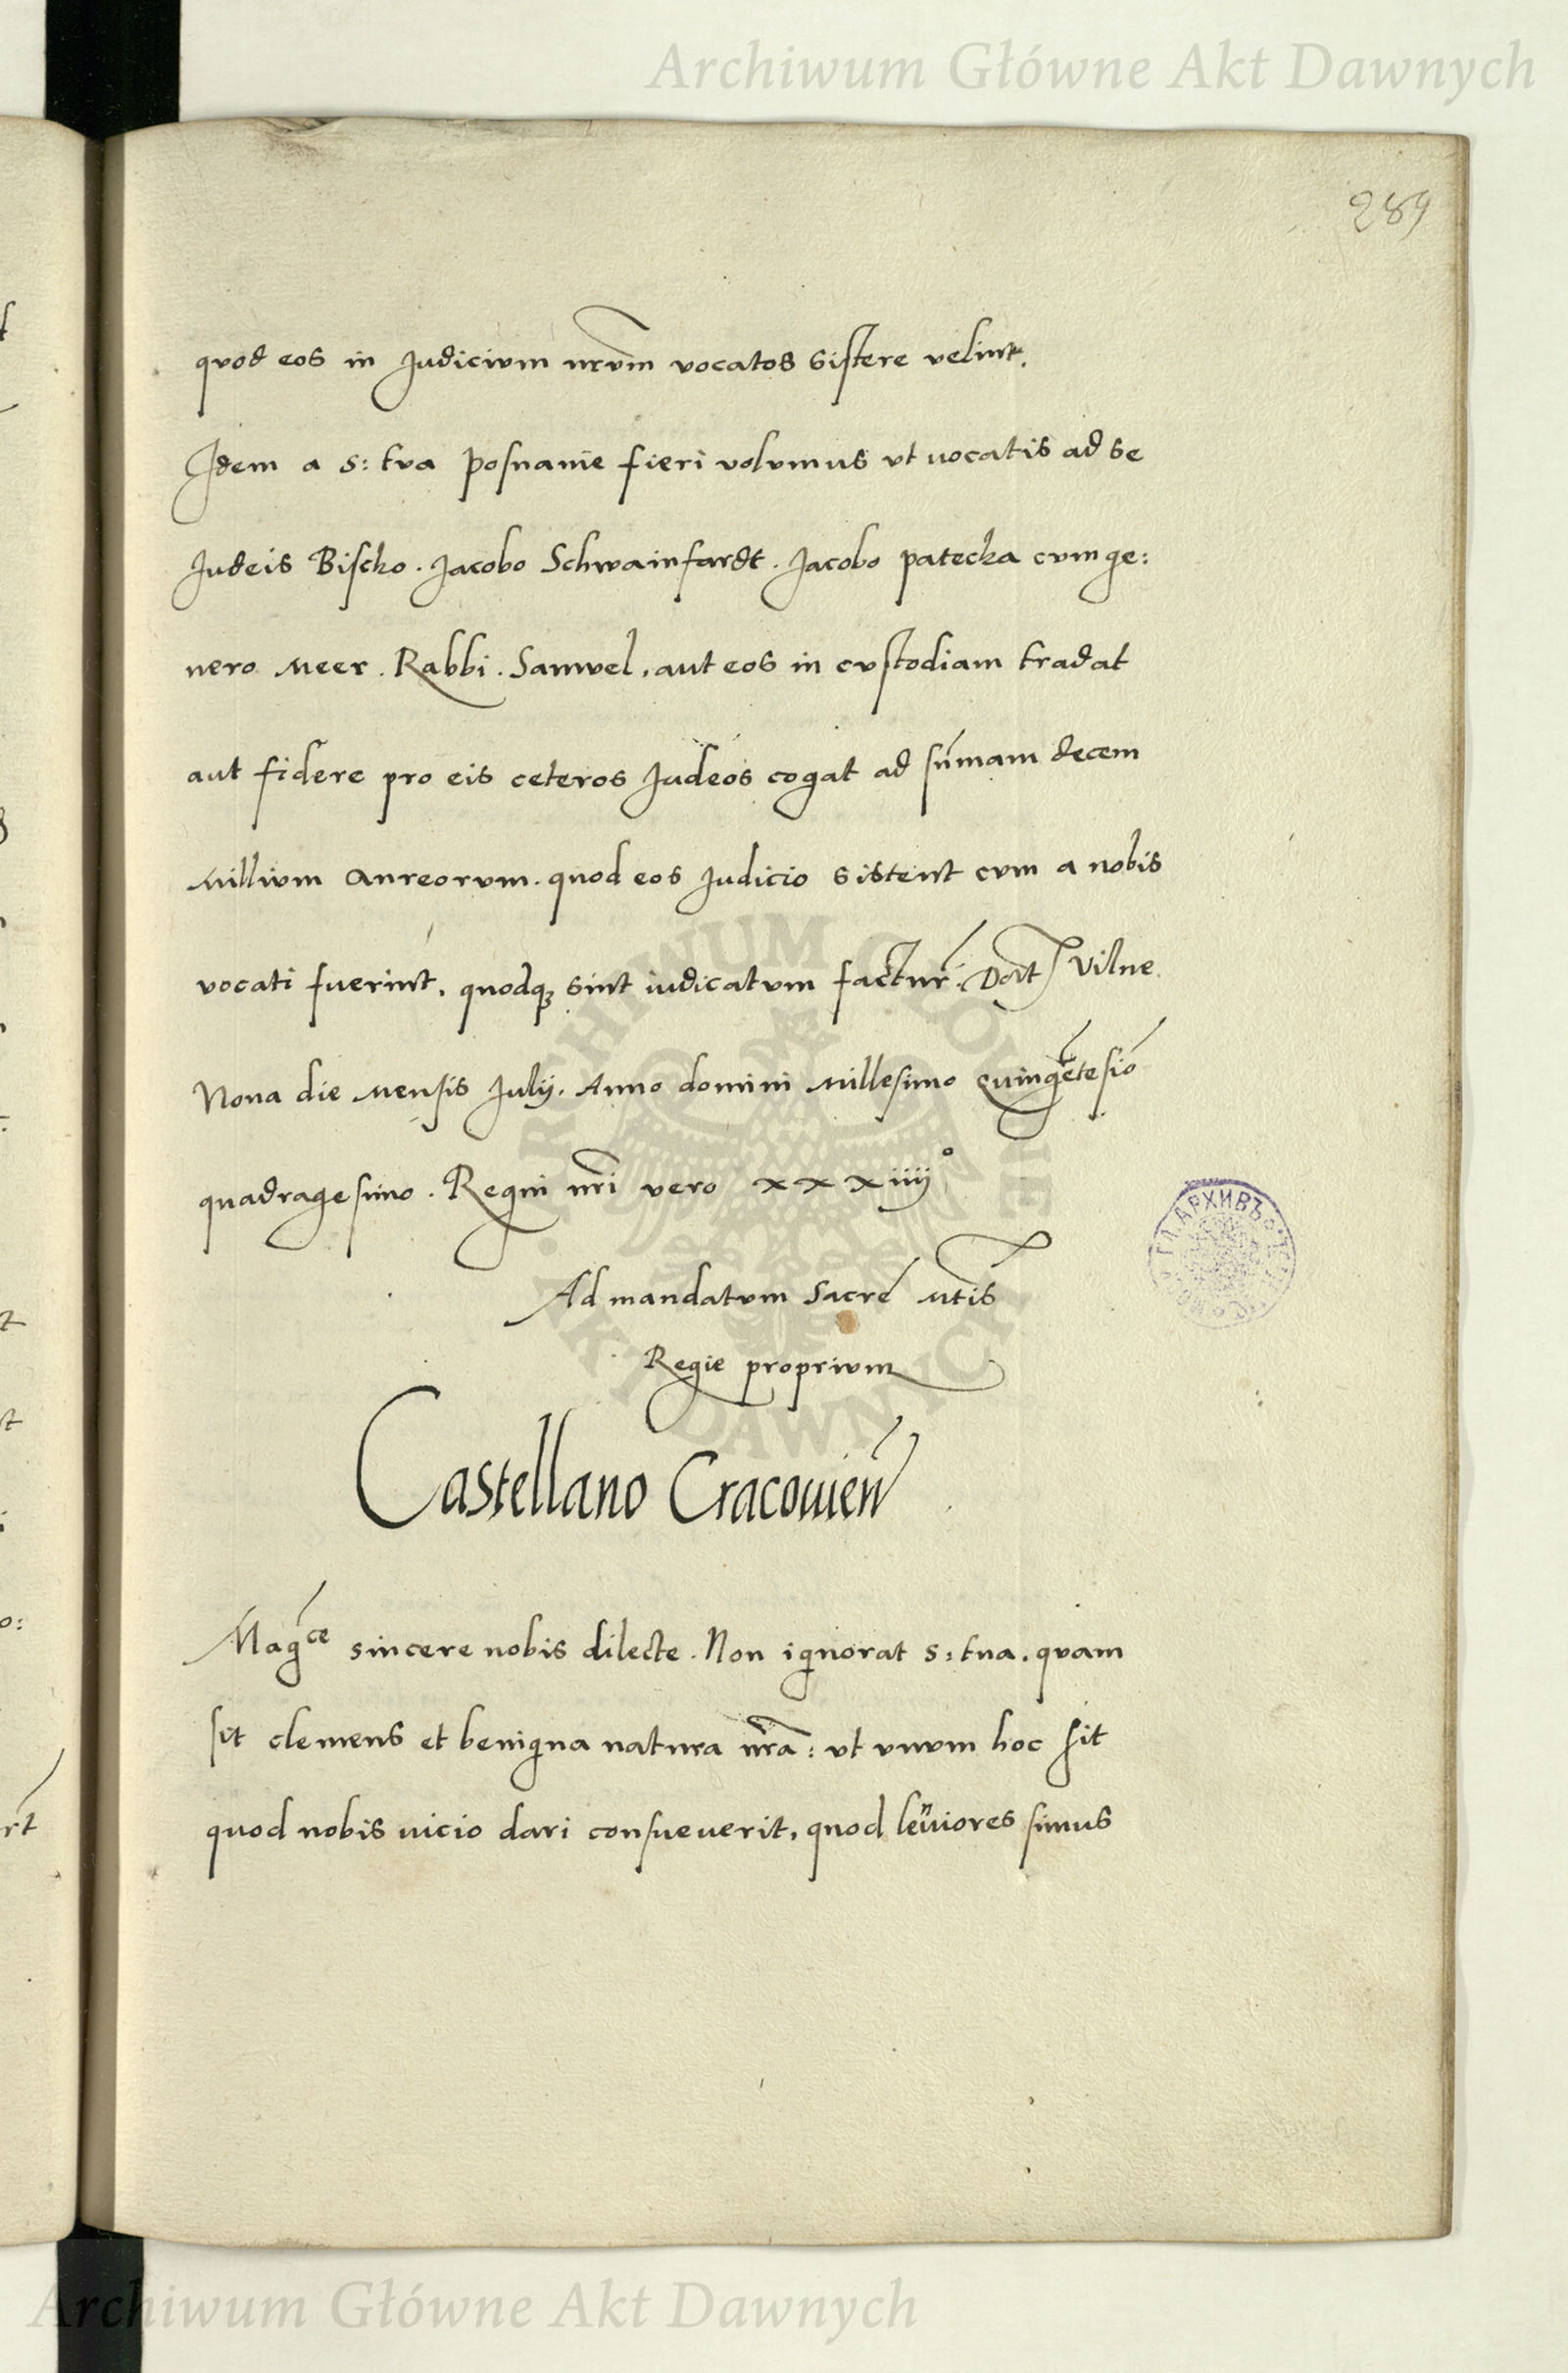 Archiwum Główne Akt Dawnych
289
quod eos in Judicium nr̃um vocatos sistere velint.
Idem a s: tua Posnanie fieri volumus ut uocatis ad se
Judeis Biscko. Jacobo Schwainfardt. Jacobo patecka cum ge:
nero Meer. Rabbi. Samuel, aut eos in custodiam tradat
aut fidere pro eis ceteros Judeos cogat ad sum̃am decem
Millium Aureorum. quod eos Judicio sistent cum a nobis
vocati fuerint, quodq₃ sint iudicatum factur̃i. Dat̃ Vilne
Nona die Mensis Julij. Anno domini Millesimo Quingẽtesiõ
quadragesimo. Regni nr̃i vero xxxiiijº
Ad mandatum Sacre Mtis
Regie proprium
Castellano Cracouien̄
Magce sincere nobis dilecte. Non ignorat s: tua, quam
sit clemens et benigna natura nr̃a: ut unum hoc sit
quod nobis vicio dari consueuerit, quod leniores simus
АРХИВЪ
ARCHIWUM GŁÓWNE AKT DAWNYCH
Archiwum Główne Akt Dawnych